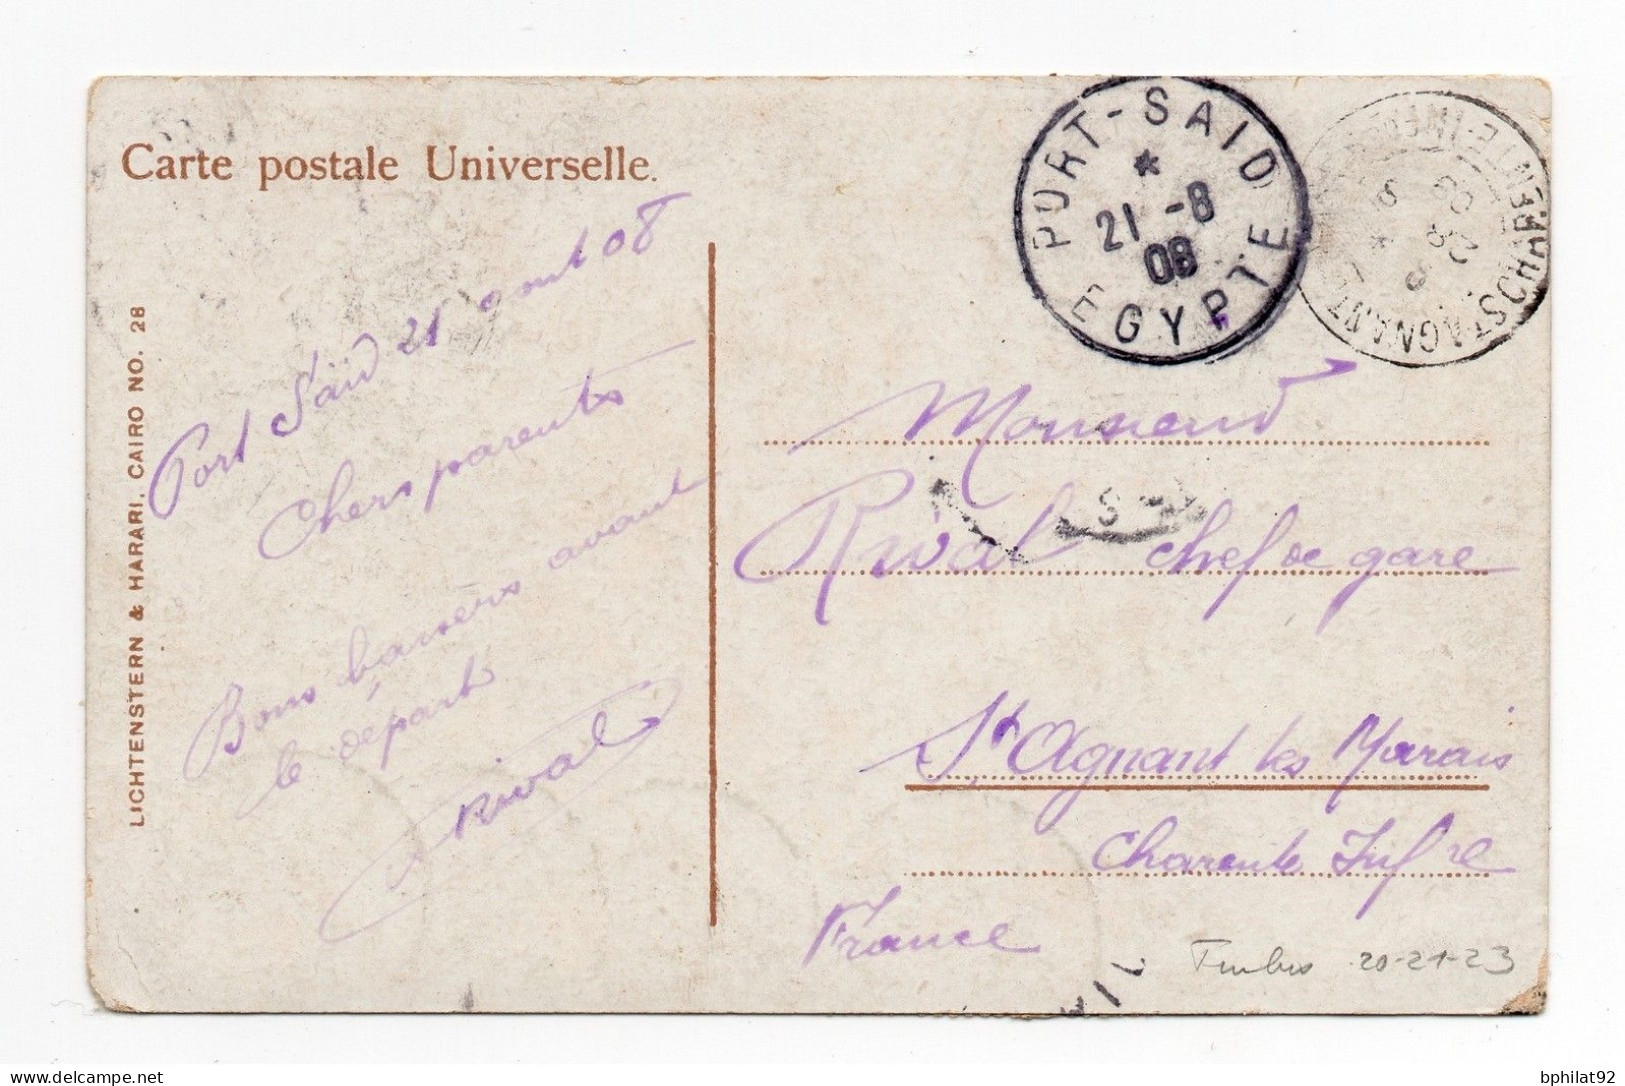 Carte postale Universelle.
LICHTENSTERN & HARARI, CAIRO NO. 28
Port Saïd 21 aout 08
Chers parents
Bons baisers avant
le départ
Rival
PORT-SAID
*
21 -8
08
EGYPTE
ST AGNANT
CHARENTE-INF
Monsieur
Rival chef de gare
St Agnant les Marais
Charente Infre
France
Timbres 20-21-23
delcampe.net
bphilat92